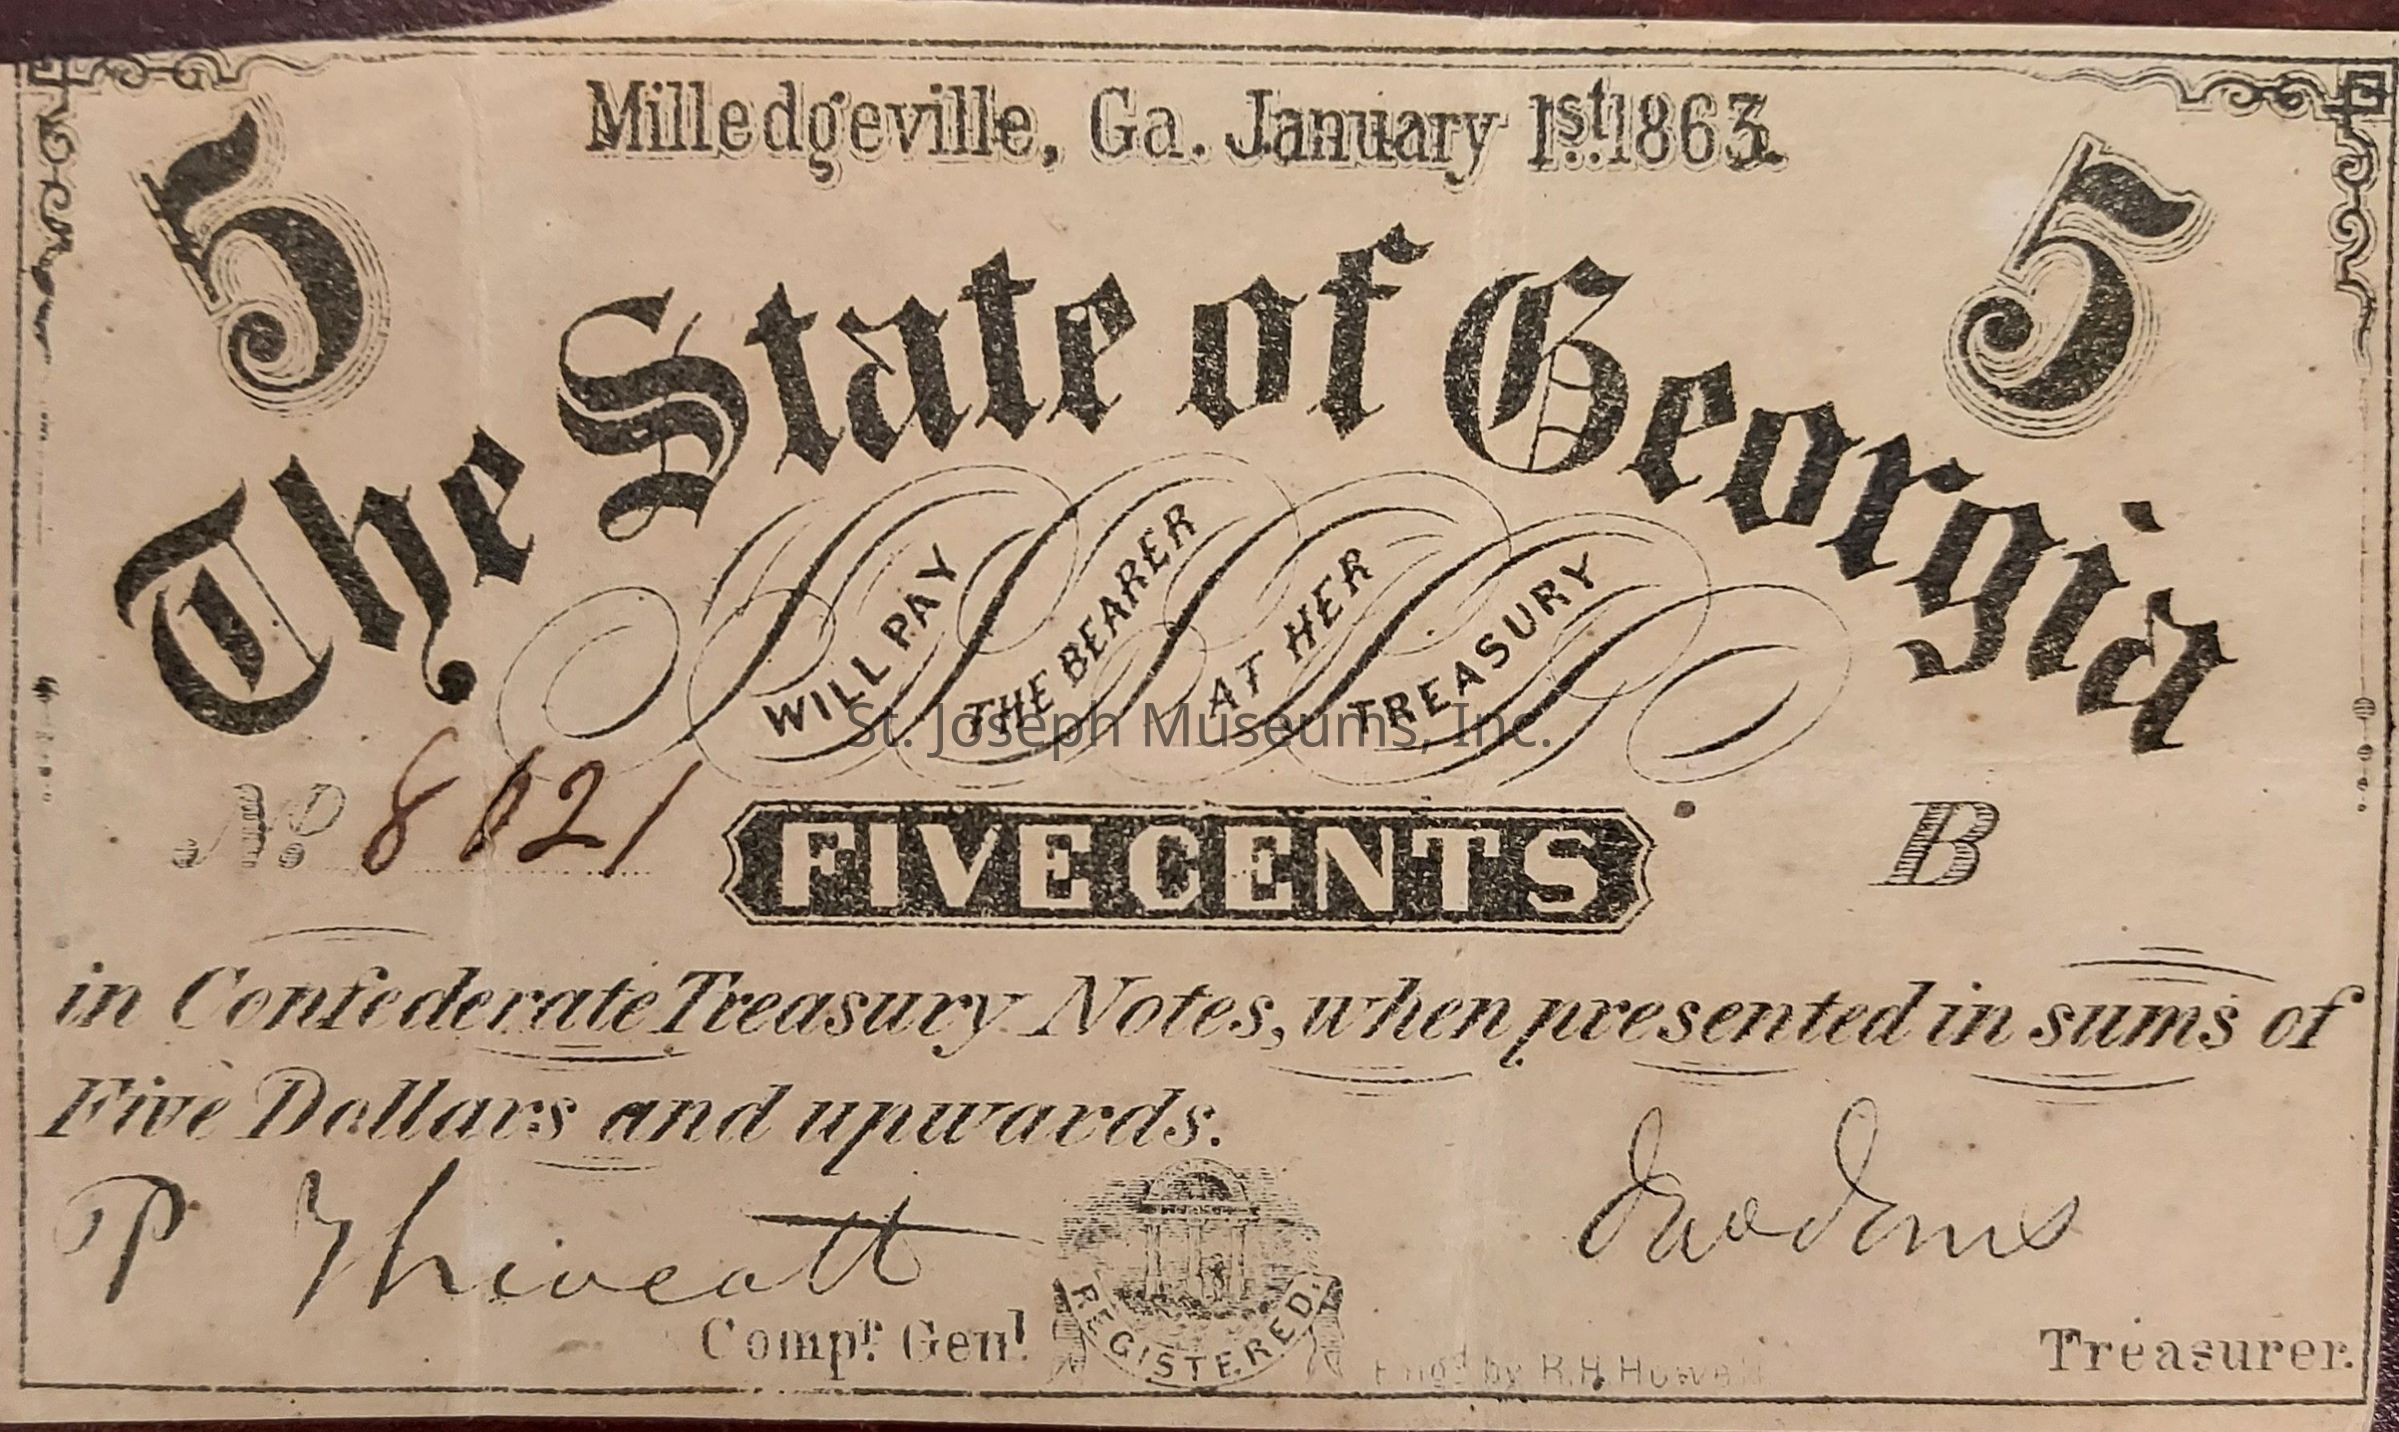 Milledgeville, Ga. January 1st. 1863.
5 5
The State of Georgia
WILL PAY
THE BEARER
AT HER
TREASURY
St. Joseph Museums, Inc.
No. 8121
FIVE CENTS
B
in Confederate Treasury Notes, when presented in sums of
Five Dollars and upwards.
P Thweatt
Compr. Genl.
REGISTERED.
Engd. by R.H. Howell
Jno Jones
Treasurer.